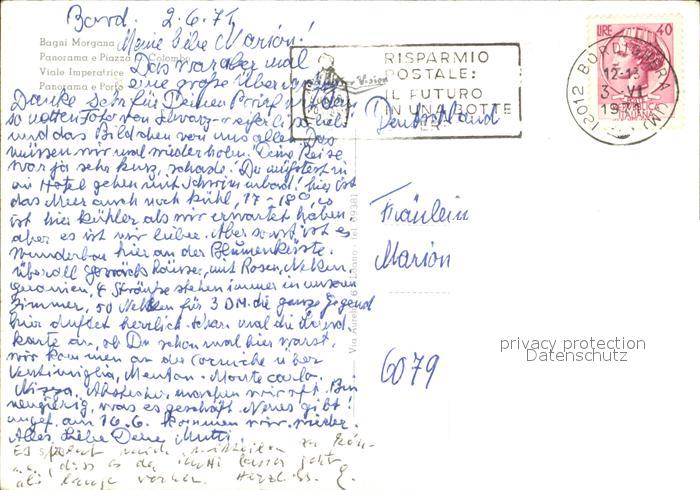 Bord. 2.6.71
Bagni Morgana
Panorama e Piazza C. Colombo
Viale Imperatrice
Panorama e Porto
Meine liebe Marion!
Das war aber mal
eine große Überraschung
Danke Sehr für Deinen Brief mit dem
so netten Foto von
und das Bildchen von uns allen. Das
müssen wir mal wiederholen. Deine Reise
war ja sehr kurz, schade! Du müsstest in
ein Hotel gehen mit Schwimmbad! hier ist
das Meer auch noch kühl, 17-18°, es
ist hier kühler als wir erwartet haben
aber es ist mir lieber. Aber sonst ist es
wunderbar hier an der Blumenküste.
überall Gewächshäuser, mit Rosen, Nelken,
geranien, 4 Sträuße stehen immer in unserem
Zimmer, 50 Nelken für 3 DM. die ganze Gegend
hier duftet herrlich. Schau mal die Land-
karte an, ob Du schon mal hier warst,
wir kommen an der Corniche über
Ventimiglia, Menton - Monte carlo.
Nizza. Abstecher machen wir oft. Bin
neugierig, was es geschäftl. Neues gibt!
ungef. am 16.6. kommen wir wieder.
Alles Liebe Deine Mutti.
Es freut mich, mitteilen zu kön-
nen, dass es der Mutti besser geht
als lange vorher. Herzl.
RISPARMIO
POSTALE:
IL FUTURO
IN UNA BOTTE
LIRE 40
REPUBBLICA
ITALIANA
12012 BORDIGHERA (IM)
12-13
3. VI
1971
Deutschland
Fräulein
Marion
6079
privacy protection
Datenschutz